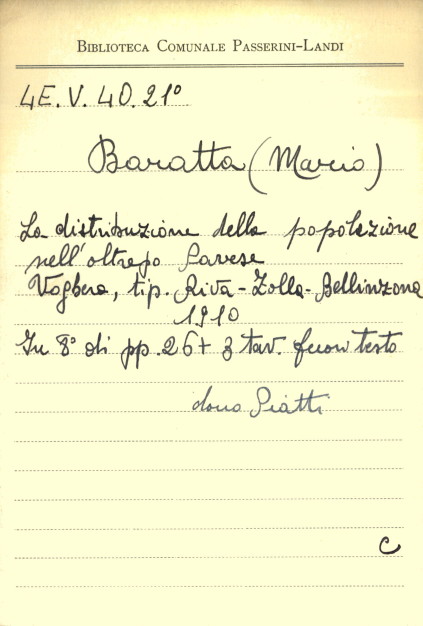 BIBLIOTECA COMUNALE PASSERINI-LANDI
4E. V. 40. 21°
Baratta (Mario)
La distribuzione della popolazione
nell'oltrepo Pavese
Voghera, tip. Riva-Zolla-Bellinzona
1910
In 8° di pp. 26 + 3 tav. fuori testo
dono Piatti
C